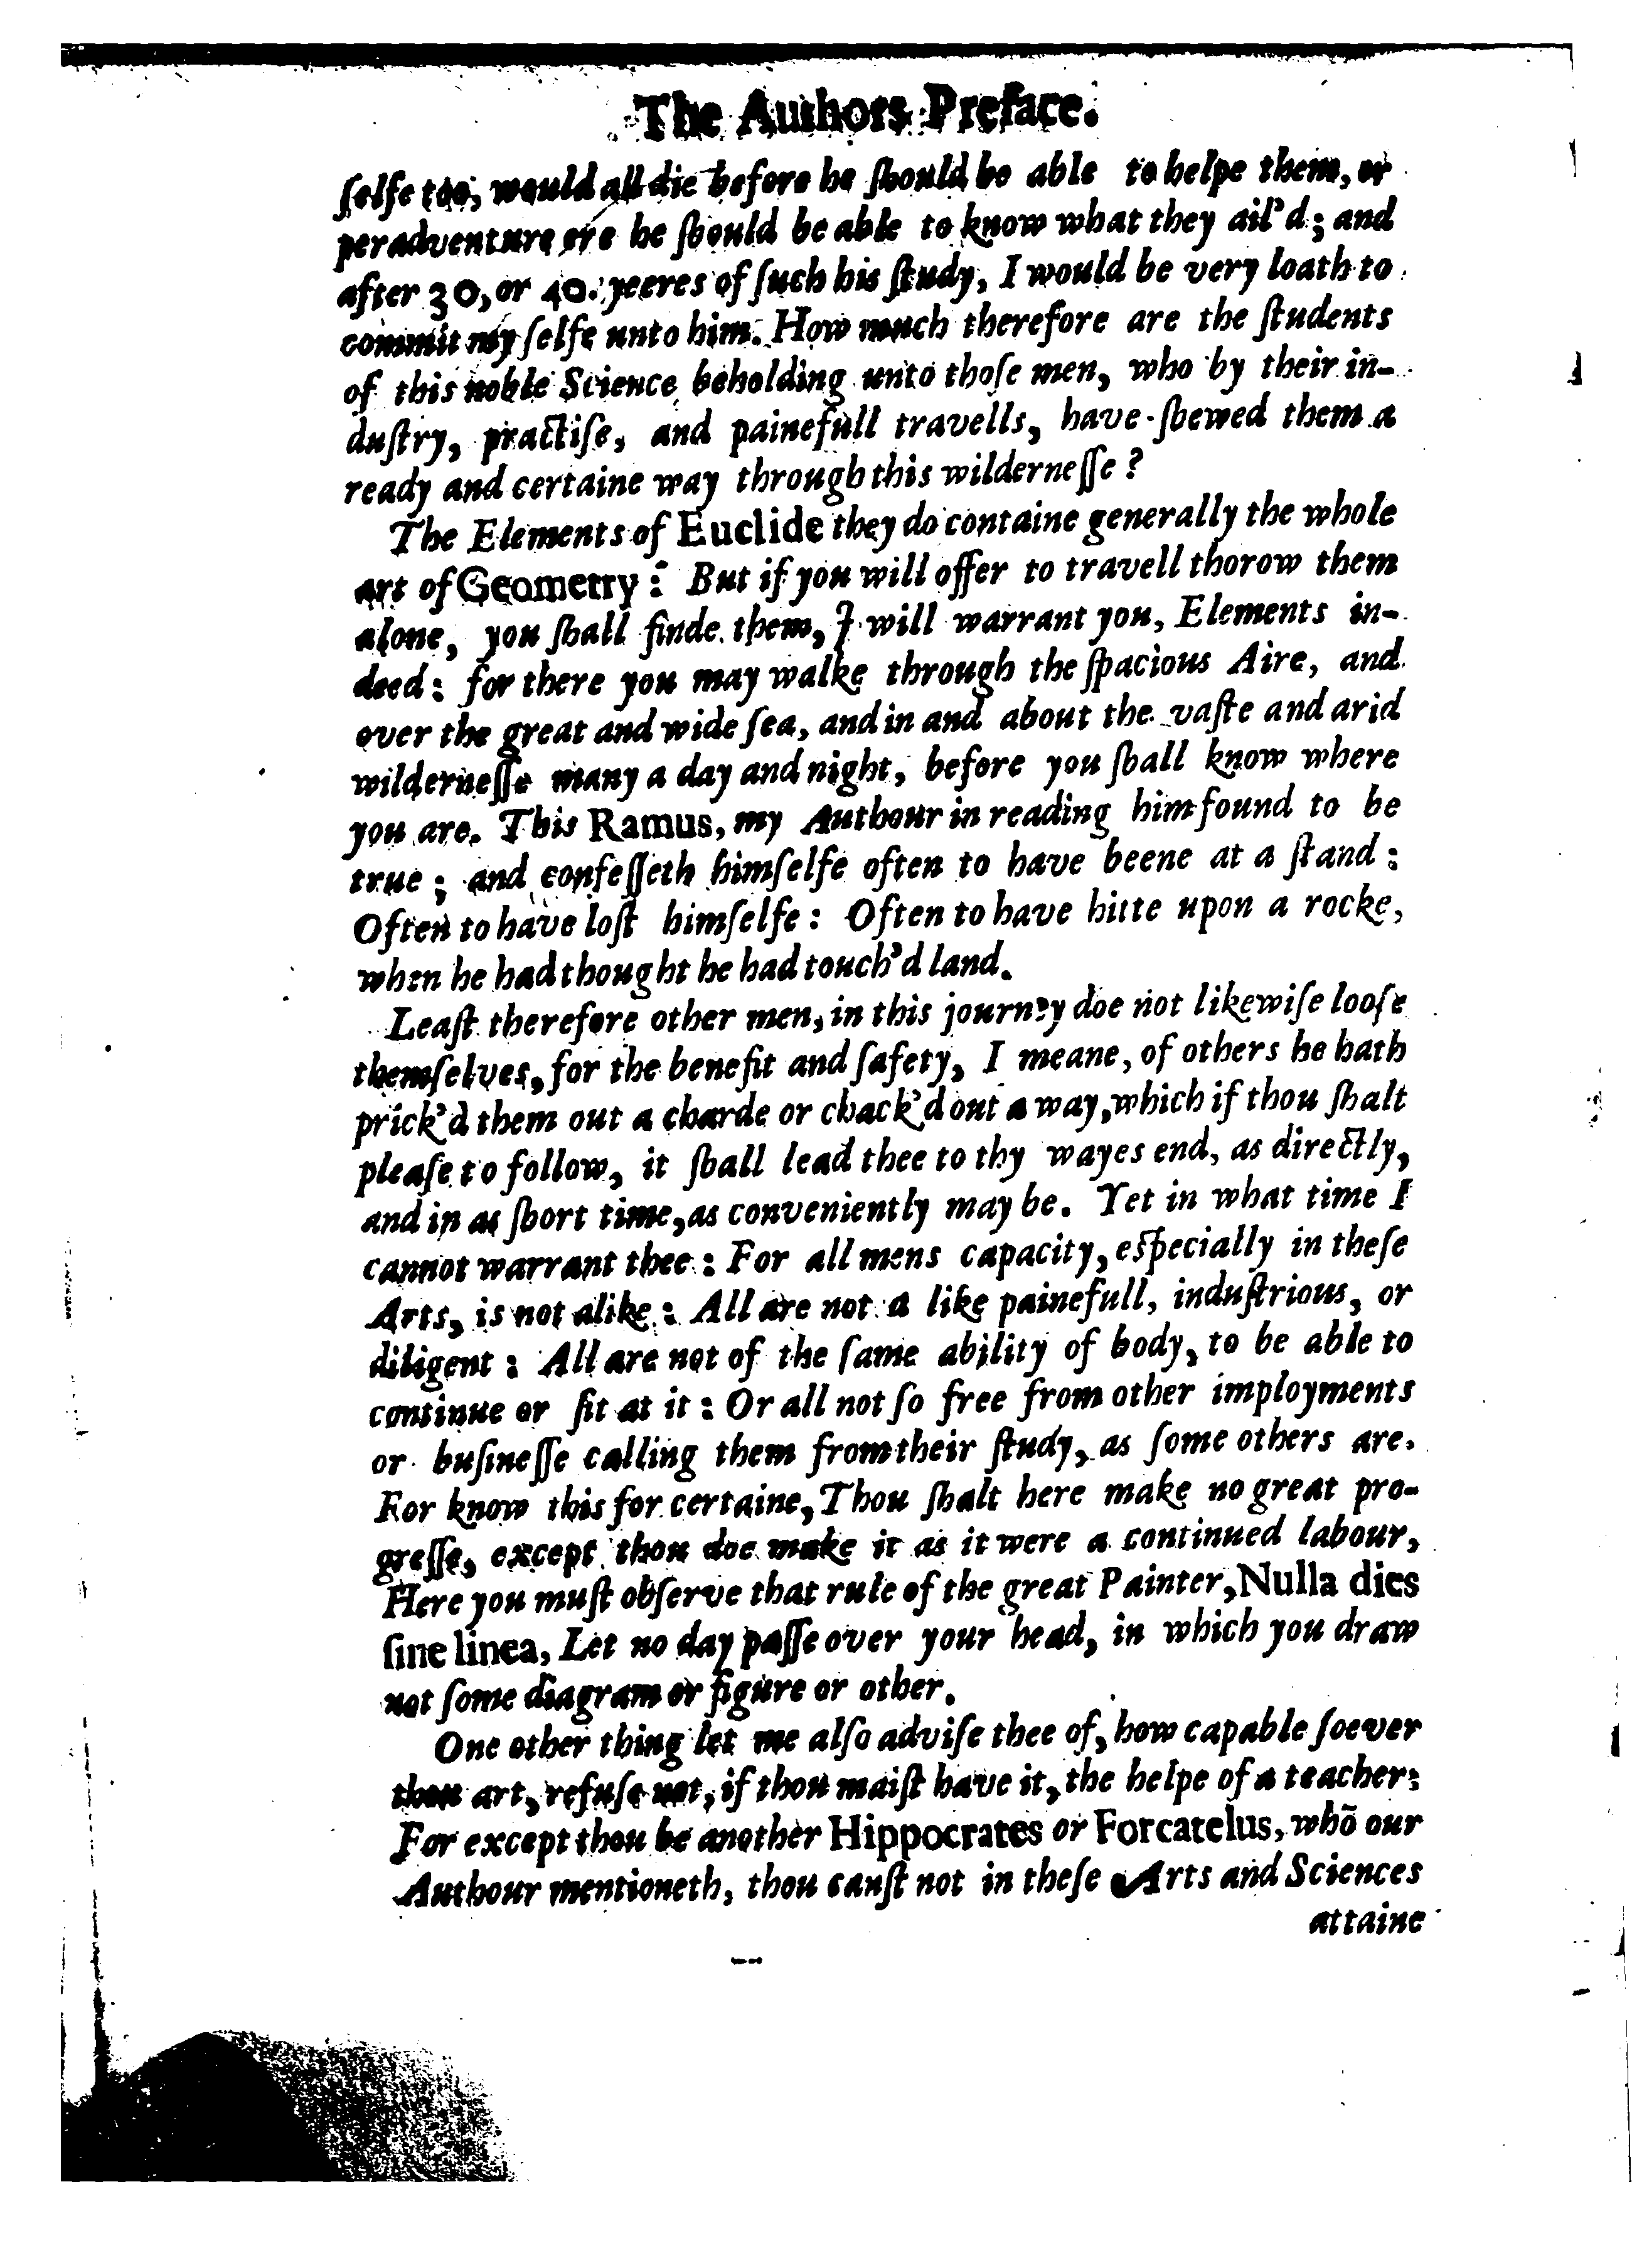 The Authors Preface.
ſelfe too, would all die before he ſhould be able to helpe them, or
peradventure ere he ſhould be able to know what they ail'd; and
after 30, or 40. yeeres of ſuch his ſtudy, I would be very loath to
commit my ſelfe unto him. How much therefore are the ſtudents
of this noble Science beholding unto thoſe men, who by their in-
duſtry, practiſe, and painefull travells, have ſhewed them a
ready and certaine way through this wilderneſſe?
The Elements of Euclide they do containe generally the whole
art of Geometry: But if you will offer to travell thorow them
alone, you ſhall finde them, I will warrant you, Elements in-
deed: for there you may walke through the ſpacious Aire, and
over the great and wide ſea, and in and about the vaſte and arid
wilderneſſe many a day and night, before you ſhall know where
you are. This Ramus, my Authour in reading him found to be
true; and confeſſeth himſelfe often to have beene at a ſtand:
Often to have loſt himſelfe: Often to have hitte upon a rocke,
when he had thought he had touch'd land.
Leaſt therefore other men, in this journey doe not likewiſe looſe
themſelves, for the benefit and ſafety, I meane, of others he hath
prick'd them out a charde or chack'd out a way, which if thou ſhalt
pleaſe to follow, it ſhall lead thee to thy wayes end, as directly,
and in as ſhort time, as conveniently may be. Yet in what time I
cannot warrant thee: For all mens capacity, eſpecially in theſe
Arts, is not alike: All are not a like painefull, induſtrious, or
diligent: All are not of the ſame ability of body, to be able to
continue or ſit at it: Or all not ſo free from other imployments
or buſineſſe calling them from their ſtudy, as ſome others are.
For know this for certaine, Thou ſhalt here make no great pro-
greſſe, except thou doe make it as it were a continued labour,
Here you muſt obſerve that rule of the great Painter, Nulla dies
ſine linea, Let no day paſſe over your head, in which you draw
not ſome diagram or figure or other.
One other thing let me alſo adviſe thee of, how capable ſoever
thou art, refuſe not, if thou maiſt have it, the helpe of a teacher:
For except thou be another Hippocrates or Forcatelus, whõ our
Authour mentioneth, thou canſt not in theſe Arts and Sciences
attaine